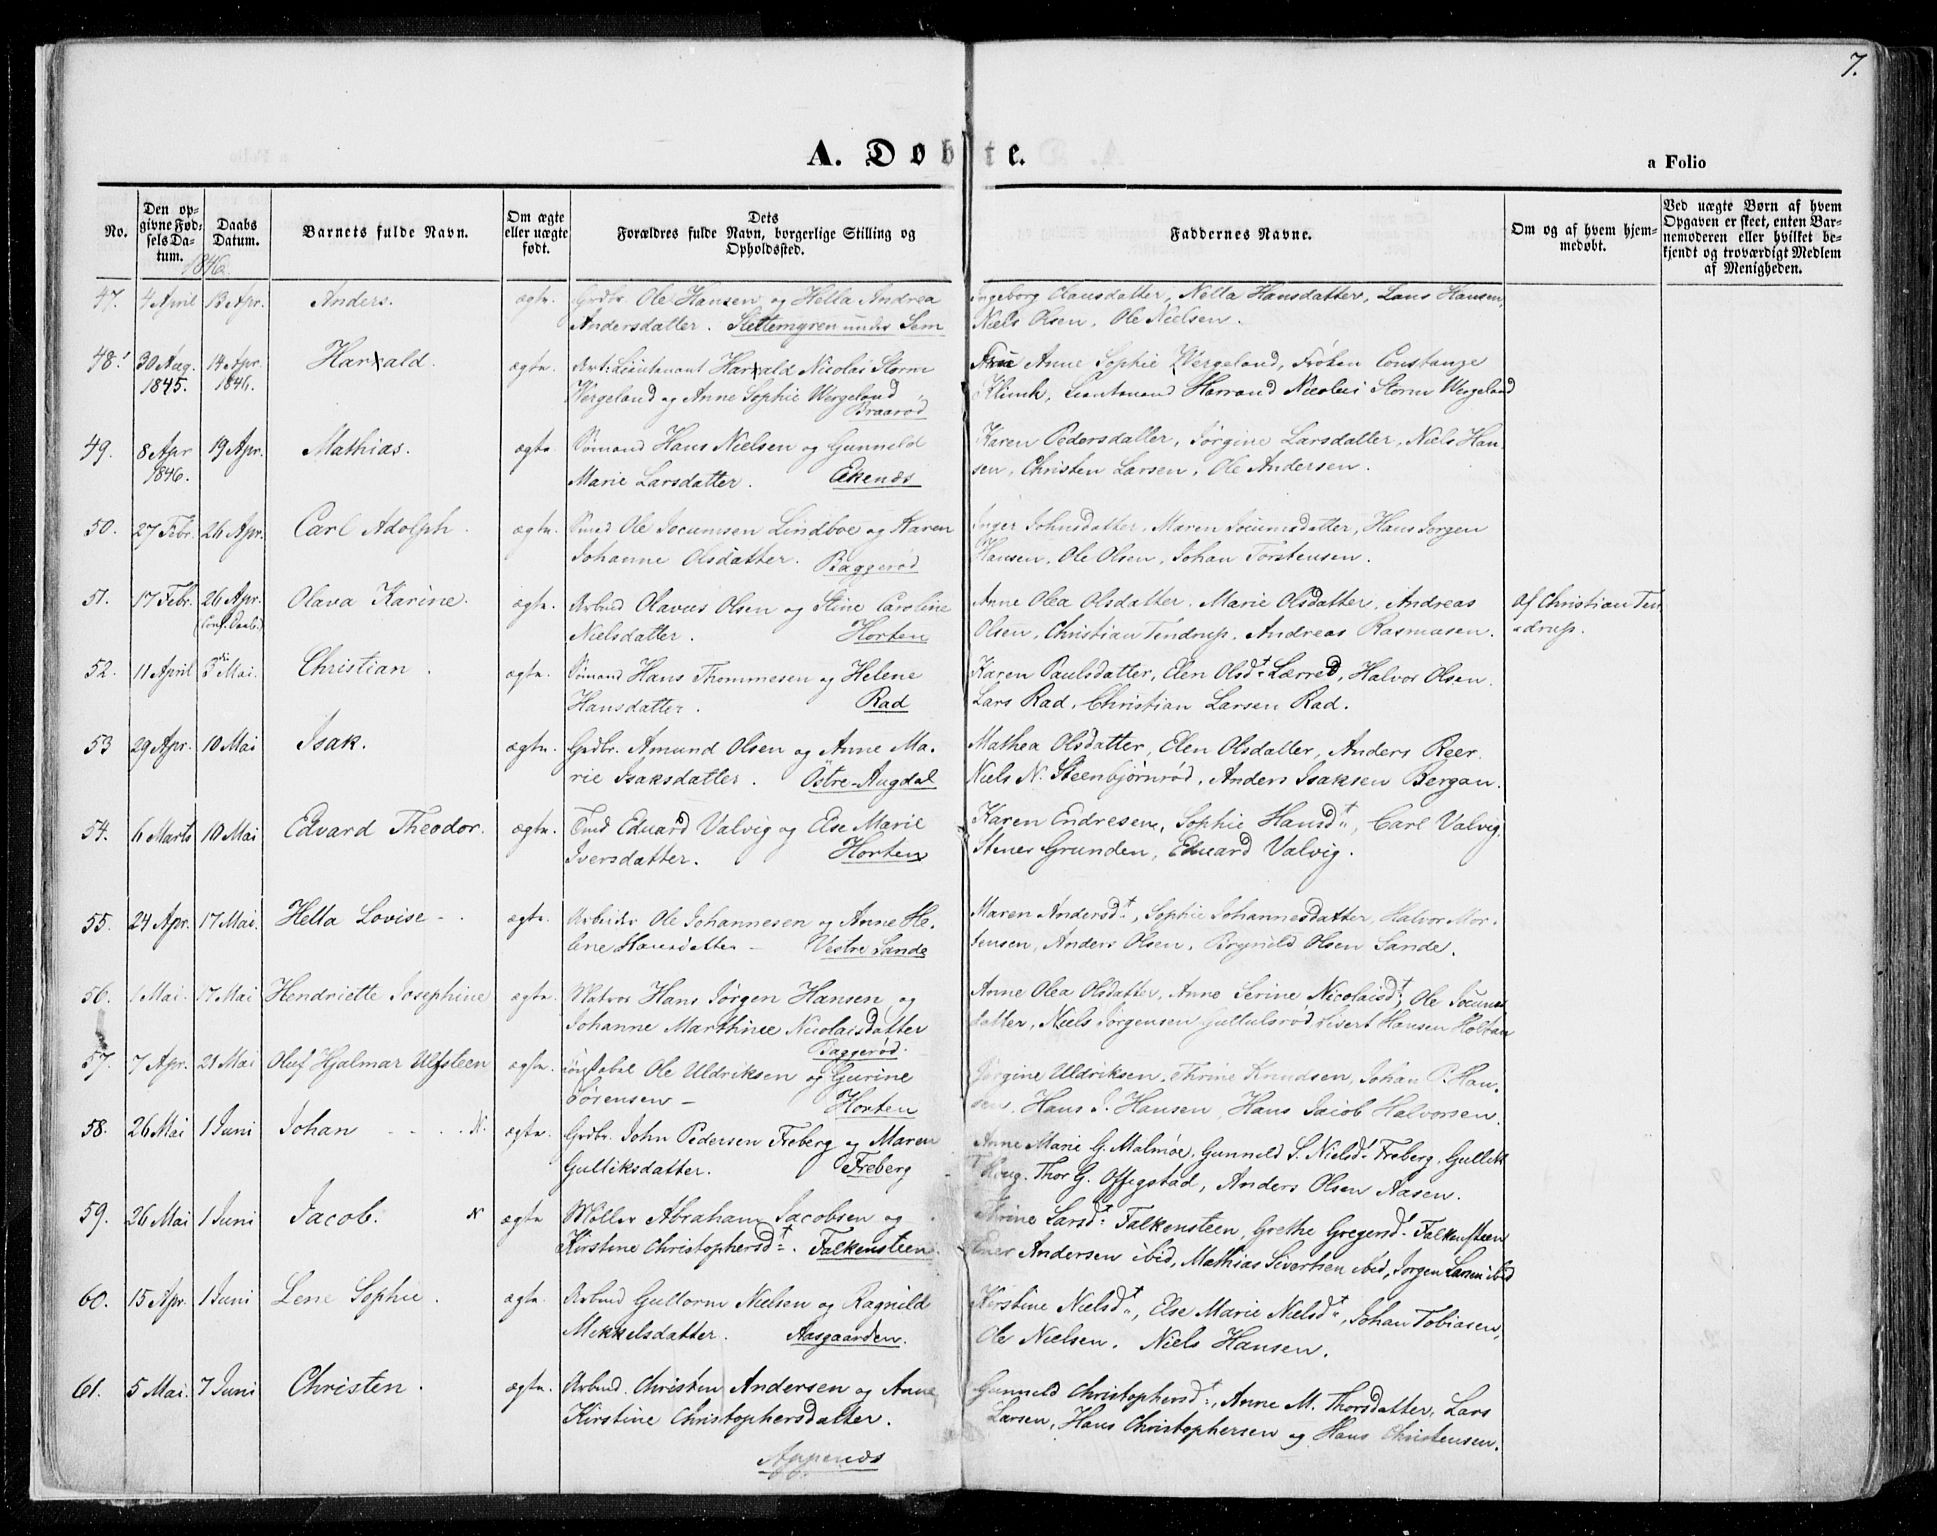 7.
A. Døbte.
a Folio
No.
Den opgivne Fødsels Datum.
Daabs Datum.
Barnets fulde Navn.
Om ægte eller uægte født.
Dets Forældres fulde Navn, borgerlige Stilling og Opholdssted.
Faddernes Navne.
Om og af hvem hjemmedøbt.
Ved uægte Børn af hvem Opgaven er skeet, enten Barnemoderen eller hvilket bekjendt og troværdigt Medlem af Menigheden.
1846
47. 4 April 13 Apr. Anders. ægte. Grdbr. Ole Hansen og Hella Andrea Ingeborg Olausdatter, Nella Hansdatter, Lars Hansen,
Andersdatter. Slettemyren under Sem Niels Olsen, Ole Nielsen.
48. 30 Aug. 14 Apr. Harald. ægte. Art: Lieutenant Harald Nicolai Storm Fru Anne Sophie Wergeland, Frøken Constanze
1845. 1846. Wergeland og Anne Sophie Wergeland Klimk, Lieutenand Harrand Nicolai Storm Wergeland
Braarød
49. 8 Apr 19 Apr. Mathias. ægte Sømand Hans Nielsen og Gunneld Karen Pedersdatter, Jørgine Larsdatter, Niels Han-
1846. Marie Larsdatter. Ekenæs sen, Christen Larsen, Ole Andersen.
50. 27 Febr. 26 Apr. Carl Adolph. ægte. Smed Ole Jocumsen Lindboe og Karen Inger Johnsdatter, Maren Jocumsdatter, Hans Jørgen
Johanne Olsdatter. Baggerød Hansen, Ole Olsen, Johan Torstensen.
51. 17 Febr. 26 Apr. Olava Karine. ægte. Arbmd Olavus Olsen og Stine Caroline Anne Olea Olsdatter, Marie Olsdatter, Andreas af Christian Ten-
(Conf. Daab.) Nielsdatter. Horten Olsen, Christian Tendrup, Andreas Rasmusen. drup.
52. 11 April 3 Mai. Christian. ægte. Sømand Hans Thommesen og Helene Karen Paulsdatter, Elen Olsdt. Lærred, Halvor Olsen
Hansdatter. Rad Lars Rad, Christian Larsen Rad.
53 29 Apr. 10 Mai Isak. ægte. Grdbr. Amund Olsen og Anne Ma- Mathea Olsdatter, Elen Olsdatter, Anders Reer.
rie Isaksdatter. Østre-Augdal Niels N. Steenbjørnrød, Anders Isaksen Bergan.
54. 6 Marts 10 Mai Edvard Theodor. ægte. Tmd Eduard Valvig og Else Marie Karen Endresen, Sophie Hansdt., Carl Valvig
Iversdatter. Horten Stener Grunden, Eduard Valvig.
55. 24 Apr. 17 Mai. Hella Lovise - ægte. Arbeider Ole Johannesen og Anne He- Maren Andersdt., Sophie Johannesdatter, Halvor Mor-
lene Hansdatter - Vestre Sande tensen, Anders Olsen, Brynild Olsen Sande.
56. 1 Mai. 17 Mai Hendriette Josephine ægte. Matros Hans Jørgen Hansen og Anne Olea Olsdatter, Anne Serine Nicolaisdt., Ole Jocums
Johanne Marthine Nicolaisdatter datter, Niels Jørgensen Gullulsrød, Sivert Hansen Holtan
Baggerød.
57. 7 Apr. 21 Mai Oluf Hjalmar Ulfsteen ægte. Constabel Ole Uldriksen og Gurine Jørgine Uldriksen, Thrine Knudsen, Johan P. Han-
Sørensen - Horten sen, Hans J. Hansen, Hans Jacob Halvorsen.
58. 26 Mai 1 Juni Johan - - - - N. ægte. Grdbr. John Pedersen Freberg og Maren Anne Marie G. Malmøe, Gunneld S. Nielsdt. Freberg, Gullik
Gulliksdatter. Freberg Thor G. Offigstad, Anders Olsen Aasen.
59. 26 Mai 1 Juni Jacob. N ægte Møller Abraham Jacobsen og Larsdt. Falkensteen, Grethe Gregersdt. Falkensteen
Kirstine Christophersdt. Falkensteen. Ener Andersen ibid, Mathias Sivertsen ibid, Jørgen Larsen ibid
60. 15 Apr. 1 Juni Lene Sophie. ægte. Arbmd Guttorm Nielsen og Ragnild Kirstine Nielsdt., Else Marie Nielsdt., Johan Tobiasen,
Mikkelsdatter. Aasgaarden. Ole Nielsen. Niels Hansen.
61. 5 Mai. 7 Juni Christen. ægte. Arbmd. Christen Andersen og Anne Gunneld Christophersdt., Anne M. Thorsdatter, Lars
Kirstine Christophersdatter. Larsen, Hans Christophersen og Hans Christensen.
Appenæs